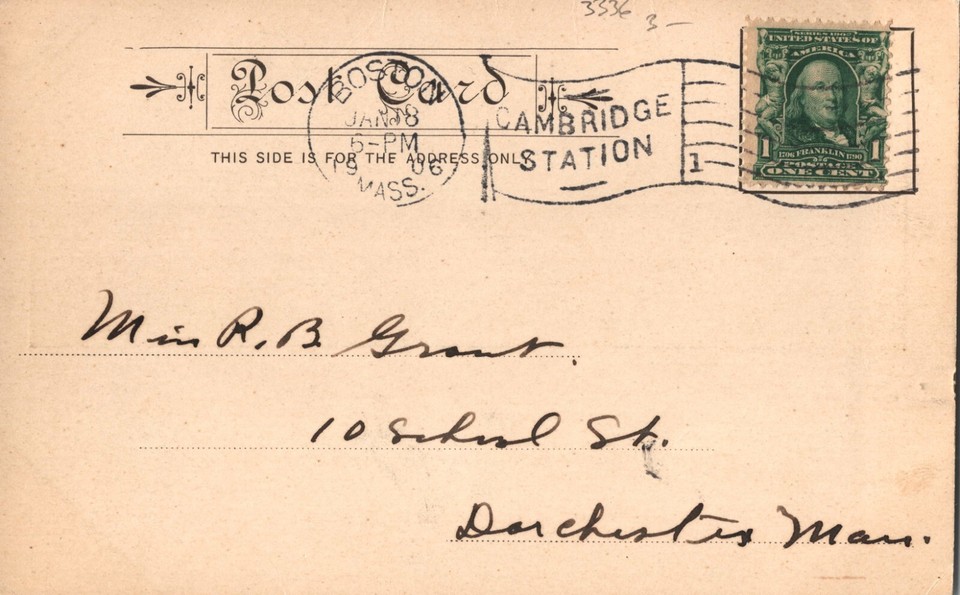 3336 3-
Post Card
THIS SIDE IS FOR THE ADDRESS ONLY
BOSTON
JAN 8
6-PM
19 06
MASS.
CAMBRIDGE
STATION
1
SERIES 1902
UNITED STATES OF
AMERICA
1 1706 FRANKLIN 1790 1
POSTAGE
ONE CENT
Miss R. B. Grant.
10 School St.
Dorchester Mass.